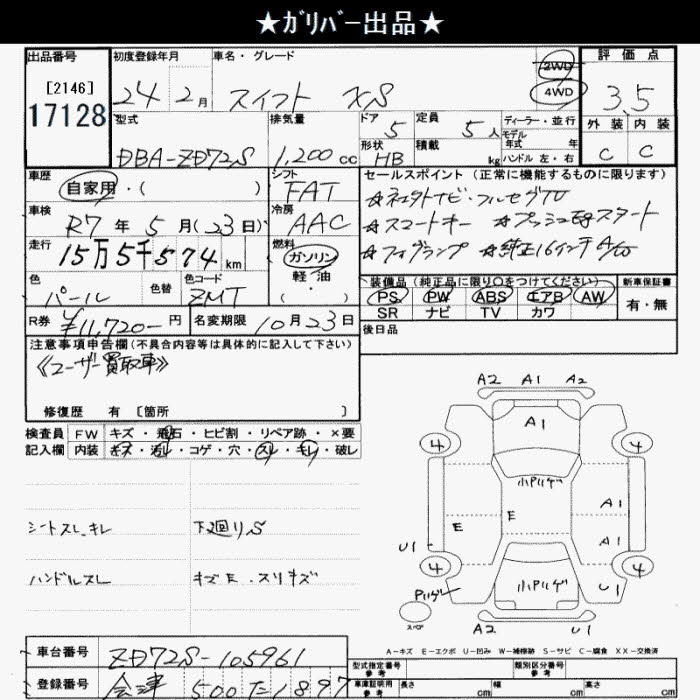 ★ｶﾞﾘﾊﾞｰ出品★
出品番号 初度登録年月 車名・グレード 2WD 4WD 評価点
[2146]
17128
24年 2月 スイフト XS 3.5
型式 排気量 ドア 5 定員 5人 ディーラー・並行 外装 内装
モデル年式 年
DBA-ZD72S 1,200cc 形状 HB 積載 kg ハンドル 左・右 C C
車歴 シフト セールスポイント (正常に機能するものに限ります)
自家用・( ) FAT ☆ネエクトナビ・フルセグTV
車検 冷房 ☆スマートキー ☆プッシュ
R7年 5月(23日) AAC スタート
走行 燃料 ☆フォグランプ ☆純正16インチA/W
15万5千574km ガソリン
軽・油
・( )
色 色替 色コード 装備品 (純正品に限り○をつけてください) 新車保証書
パール ZMT PS PW ABS エアB AW 有・無
SR ナビ TV カワ
R券 ¥11,720-円 名変期限 10月23日 後日品
注意事項申告欄(不具合内容等は具体的に記入して下さい)
《ユーザー買取車》
修復歴 有 [箇所 ]
検査員 FW キズ・飛石・ヒビ割・リペア跡・×要
記入欄 内装 キズ・汚レ・コゲ・穴・スレ・キレ・破レ
シートスレ、キレ 下廻りS
ハンドルスレ キズE・スリキズ
A2 A1 A2
A1
4 4
小ハリゲ
A1
E E
A1
U1
4 4
小ハリゲ U1
ハリゲ
スペア
A2 U1
A-キズ E-エクボ U-凹み W-補修跡 S-サビ C-腐食 XX-交換済
車台番号 ZD72S-105961 型式指定番号 参考 類別区分番号 参考
登録番号 会津 500 た 1897 車庫証明用 参考 長さ cm 幅 cm 高さ cm